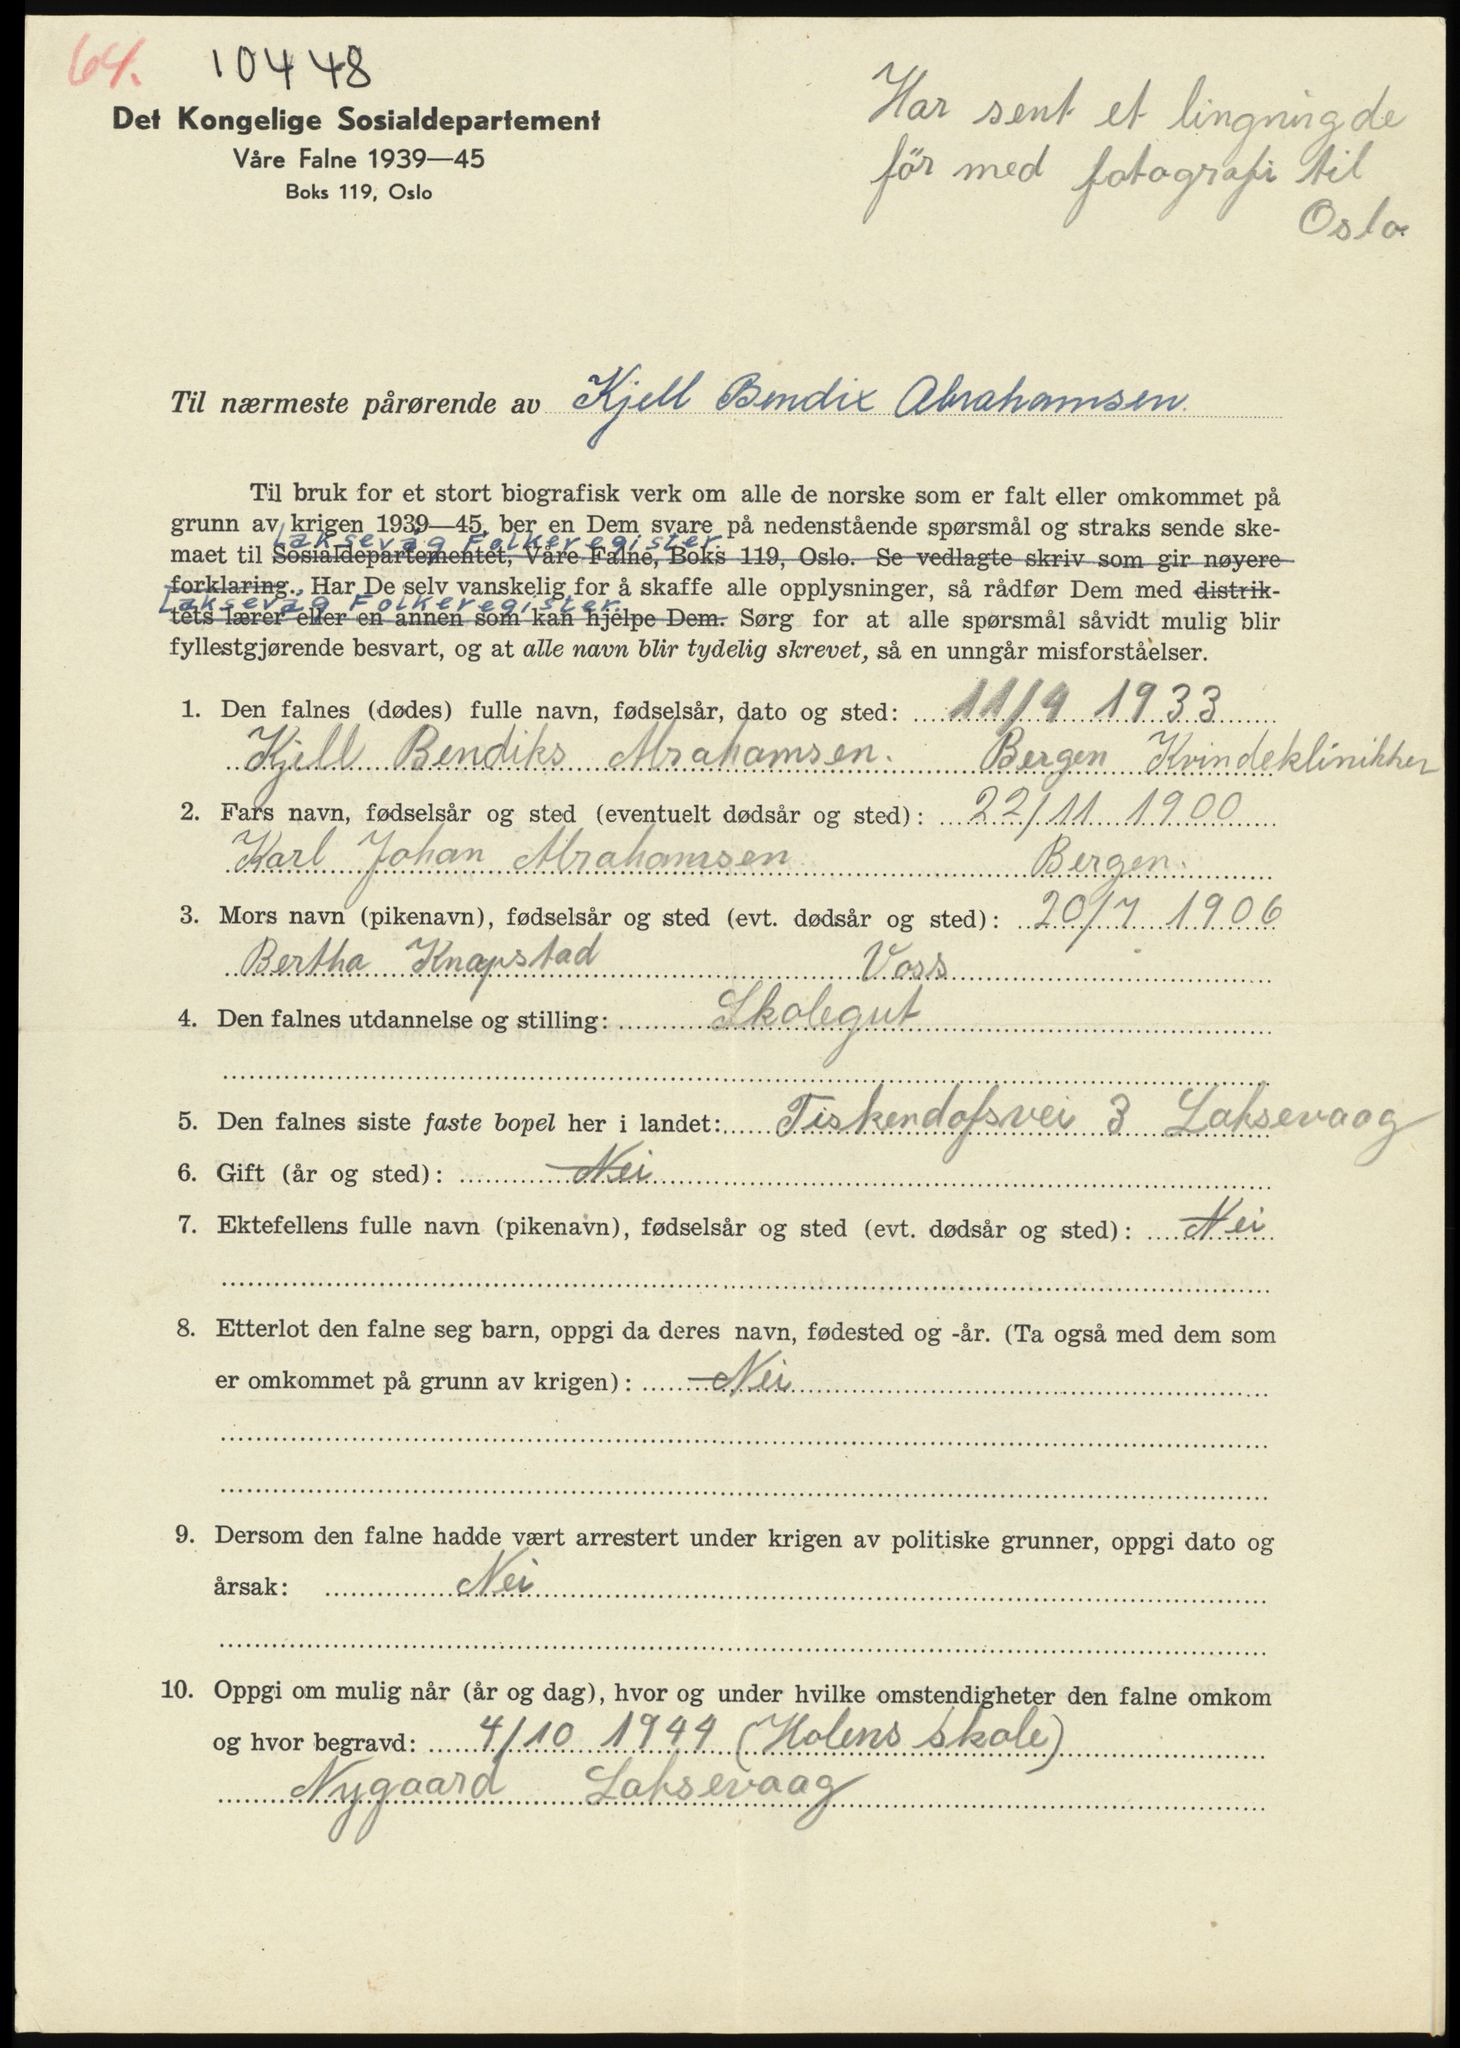 64. 10448
Det Kongelige Sosialdepartement
Våre Falne 1939—45
Boks 119, Oslo
Har sent et lingningde
för med fotografi til
Oslo
Til nærmeste pårørende av Kjell Bendix Abrahamsen.
Til bruk for et stort biografisk verk om alle de norske som er falt eller omkommet på
grunn av krigen 1939—45, ber en Dem svare på nedenstående spørsmål og straks sende ske-
Laksevåg Folkeregister.
maet til Sosialdepartementet, Våre Falne, Boks 119, Oslo. Se vedlagte skriv som gir nøyere
forklaring. Har De selv vanskelig for å skaffe alle opplysninger, så rådfør Dem med distrik-
Laksevåg Folkeregister.
tets lærer eller en annen som kan hjelpe Dem. Sørg for at alle spørsmål såvidt mulig blir
fyllestgjørende besvart, og at alle navn blir tydelig skrevet, så en unngår misforståelser.
1. Den falnes (dødes) fulle navn, fødselsår, dato og sted: 11/9 1933
Kjell Bendiks Abrahamsen. Bergen Kvindeklinikken
2. Fars navn, fødselsår og sted (eventuelt dødsår og sted): 22/11 1900
Karl Johan Abrahamsen Bergen.
3. Mors navn (pikenavn), fødselsår og sted (evt. dødsår og sted): 20/7 1906
Bertha Knapstad Voss
4. Den falnes utdannelse og stilling: Skolegut
5. Den falnes siste faste bopel her i landet: Tiskendofsvei 3 Laksevaag
6. Gift (år og sted): Nei
7. Ektefellens fulle navn (pikenavn), fødselsår og sted (evt. dødsår og sted): Nei
8. Etterlot den falne seg barn, oppgi da deres navn, fødested og -år. (Ta også med dem som
er omkommet på grunn av krigen): Nei
9. Dersom den falne hadde vært arrestert under krigen av politiske grunner, oppgi dato og
årsak: Nei
10. Oppgi om mulig når (år og dag), hvor og under hvilke omstendigheter den falne omkom
og hvor begravd: 4/10 1944 (Holens skole)
Nygaard Laksevaag